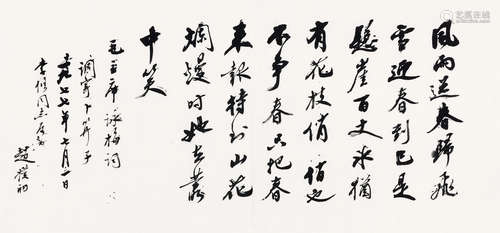 風雨送春歸飛
雪迎春到已是
懸崖百丈冰猶
有花枝俏俏也
不争春只把春
来報待到山花
爛熳时她在叢
中笑
毛主席詠梅词
调寄卜算子
一九七七年七月一日
同志
趙樸初
艺狐在线